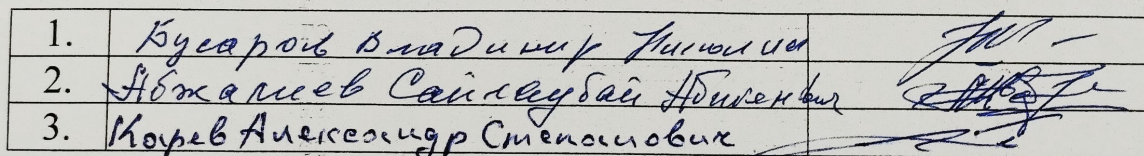 1. Бусаров Владимир
2. Абжалиев Сайлаубай Абикенвич
3. Карев Александр Степанович